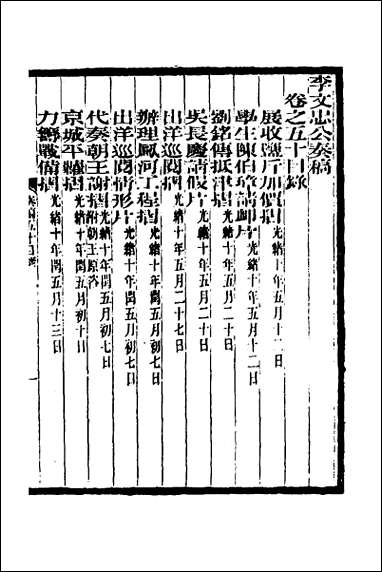 李文忠公奏稿
卷之五十目錄
展收鹽斤加價摺光緒十年五月十二日
學生陳伯璋請卹片光緒十年五月十二日
劉銘傳抵津摺光緒十年五月二十日
吳長慶請假片光緒十年五月二十日
出洋巡閱摺光緒十年五月二十七日
辦理鳳河工程摺光緒十年閏五月初七日
出洋巡閱情形片光緒十年閏五月初七日
代奏朝王謝摺附朝王原咨光緒十年閏五月初七日
京城平糶摺光緒十年閏五月初十日
力籌戰備摺光緒十年閏五月十三日
奏稿五十目錄
一